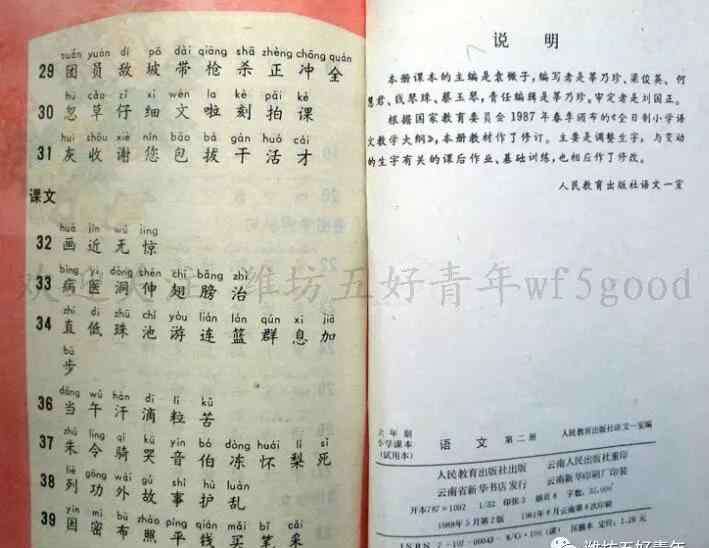 tuán yuán dí pō dài qiāng shā zhèng chōng quán
29 团 员 敌 坡 带 枪 杀 正 冲 全
hū cǎo zǐ xì wén la kè pāi kè
30 忽 草 仔 细 文 啦 刻 拍 课
huī shōu xiè nín bāo bá gàn huó cái
31 灰 收 谢 您 包 拔 干 活 才
课文
huà jìn wú jīng
32 画 近 无 惊
bìng yī dòng shēn chì bǎng zhì
33 病 医 洞 伸 翅 膀 治
zhí dī zhū chí yóu lián lán qún xī jiā
34 直 低 珠 池 游 连 篮 群 息 加
bù
步
dāng wǔ hàn dī lì kǔ
36 当 午 汗 滴 粒 苦
zhū lìng qí kū yīn bó dòng huái lí sǐ
37 朱 令 骑 哭 音 伯 冻 怀 梨 死
liè gōng wài gù shì hù luàn
38 列 功 外 故 事 护 乱
yīn mì bù zhào píng qián mǎi bǐ cǎi
39 因 密 布 照 平 钱 买 笔 采
说 明
本册课本的主编是袁微子,编写者是莘乃珍、梁俊英、何
慧君、钱琴珠、蔡玉琴,责任编辑是莘乃珍,审定者是刘国正。
根据国家教育委员会1987年春季颁布的《全日制小学语
文教学大纲》,本册教材作了修订。主要是调整生字,与变动
的生字有关的课后作业、基础训练,也相应作了修改。
人民教育出版社语文一室
六年制
小学课本
(试用本)
语 文 第二册
人民教育出版社语文一室编
人民教育出版社出版 云南人民出版社重印
云南省新华书店发行 云南新华印刷厂印装
开本787×1092 1/32 印张3 字数
1988年5月第2版
定价:
ISBN 7-107-00043
欢迎 潍坊五好青年wf5good
潍坊五好青年